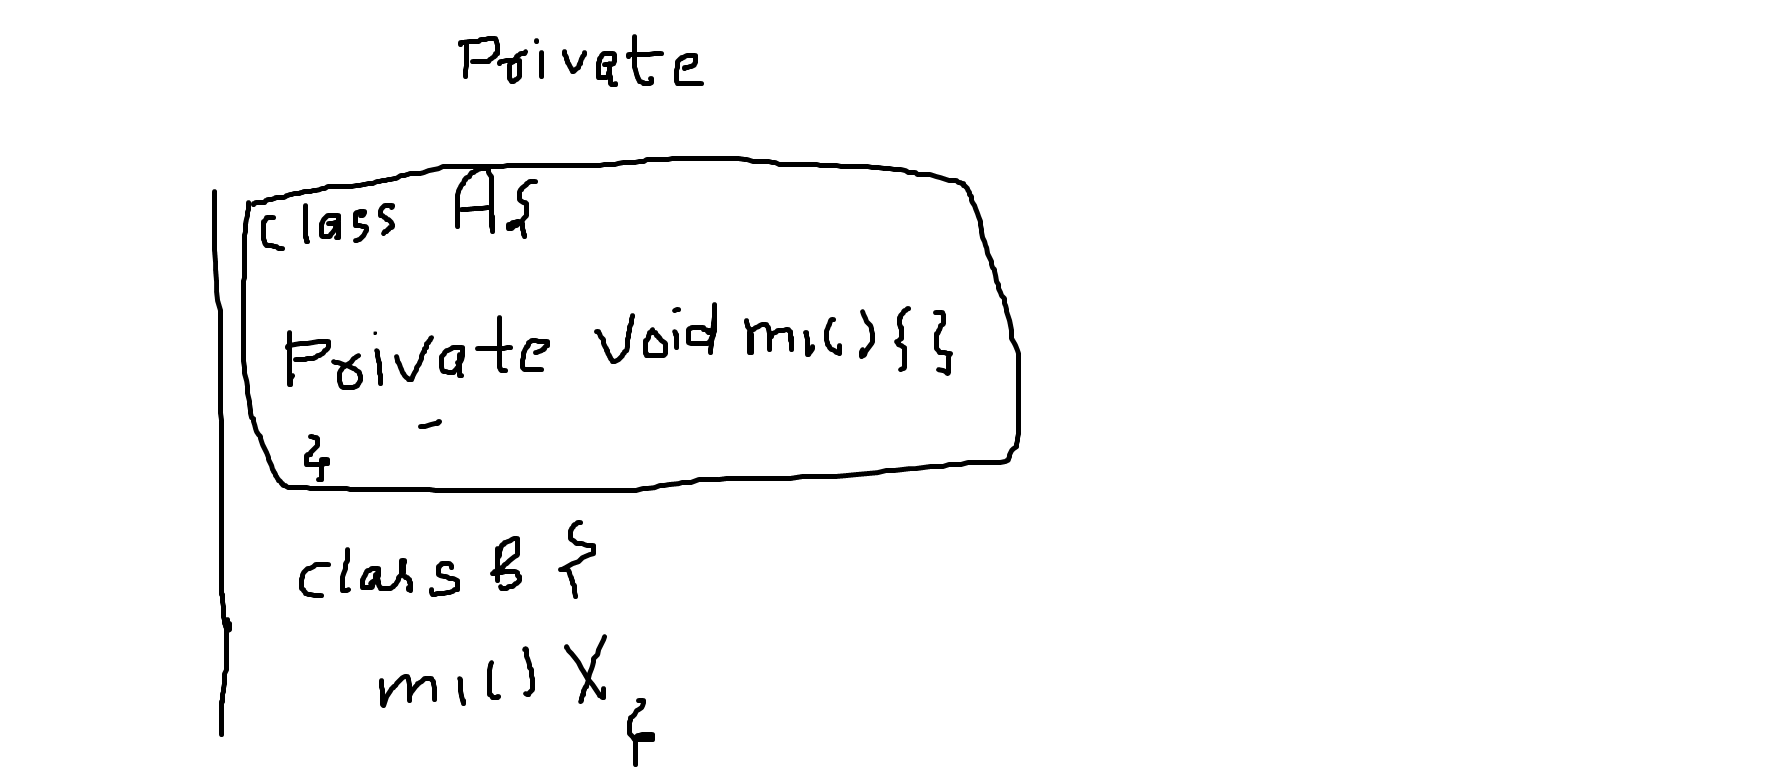 Private
class A{
Private void m1(){}
}
class B {
m1() X
}